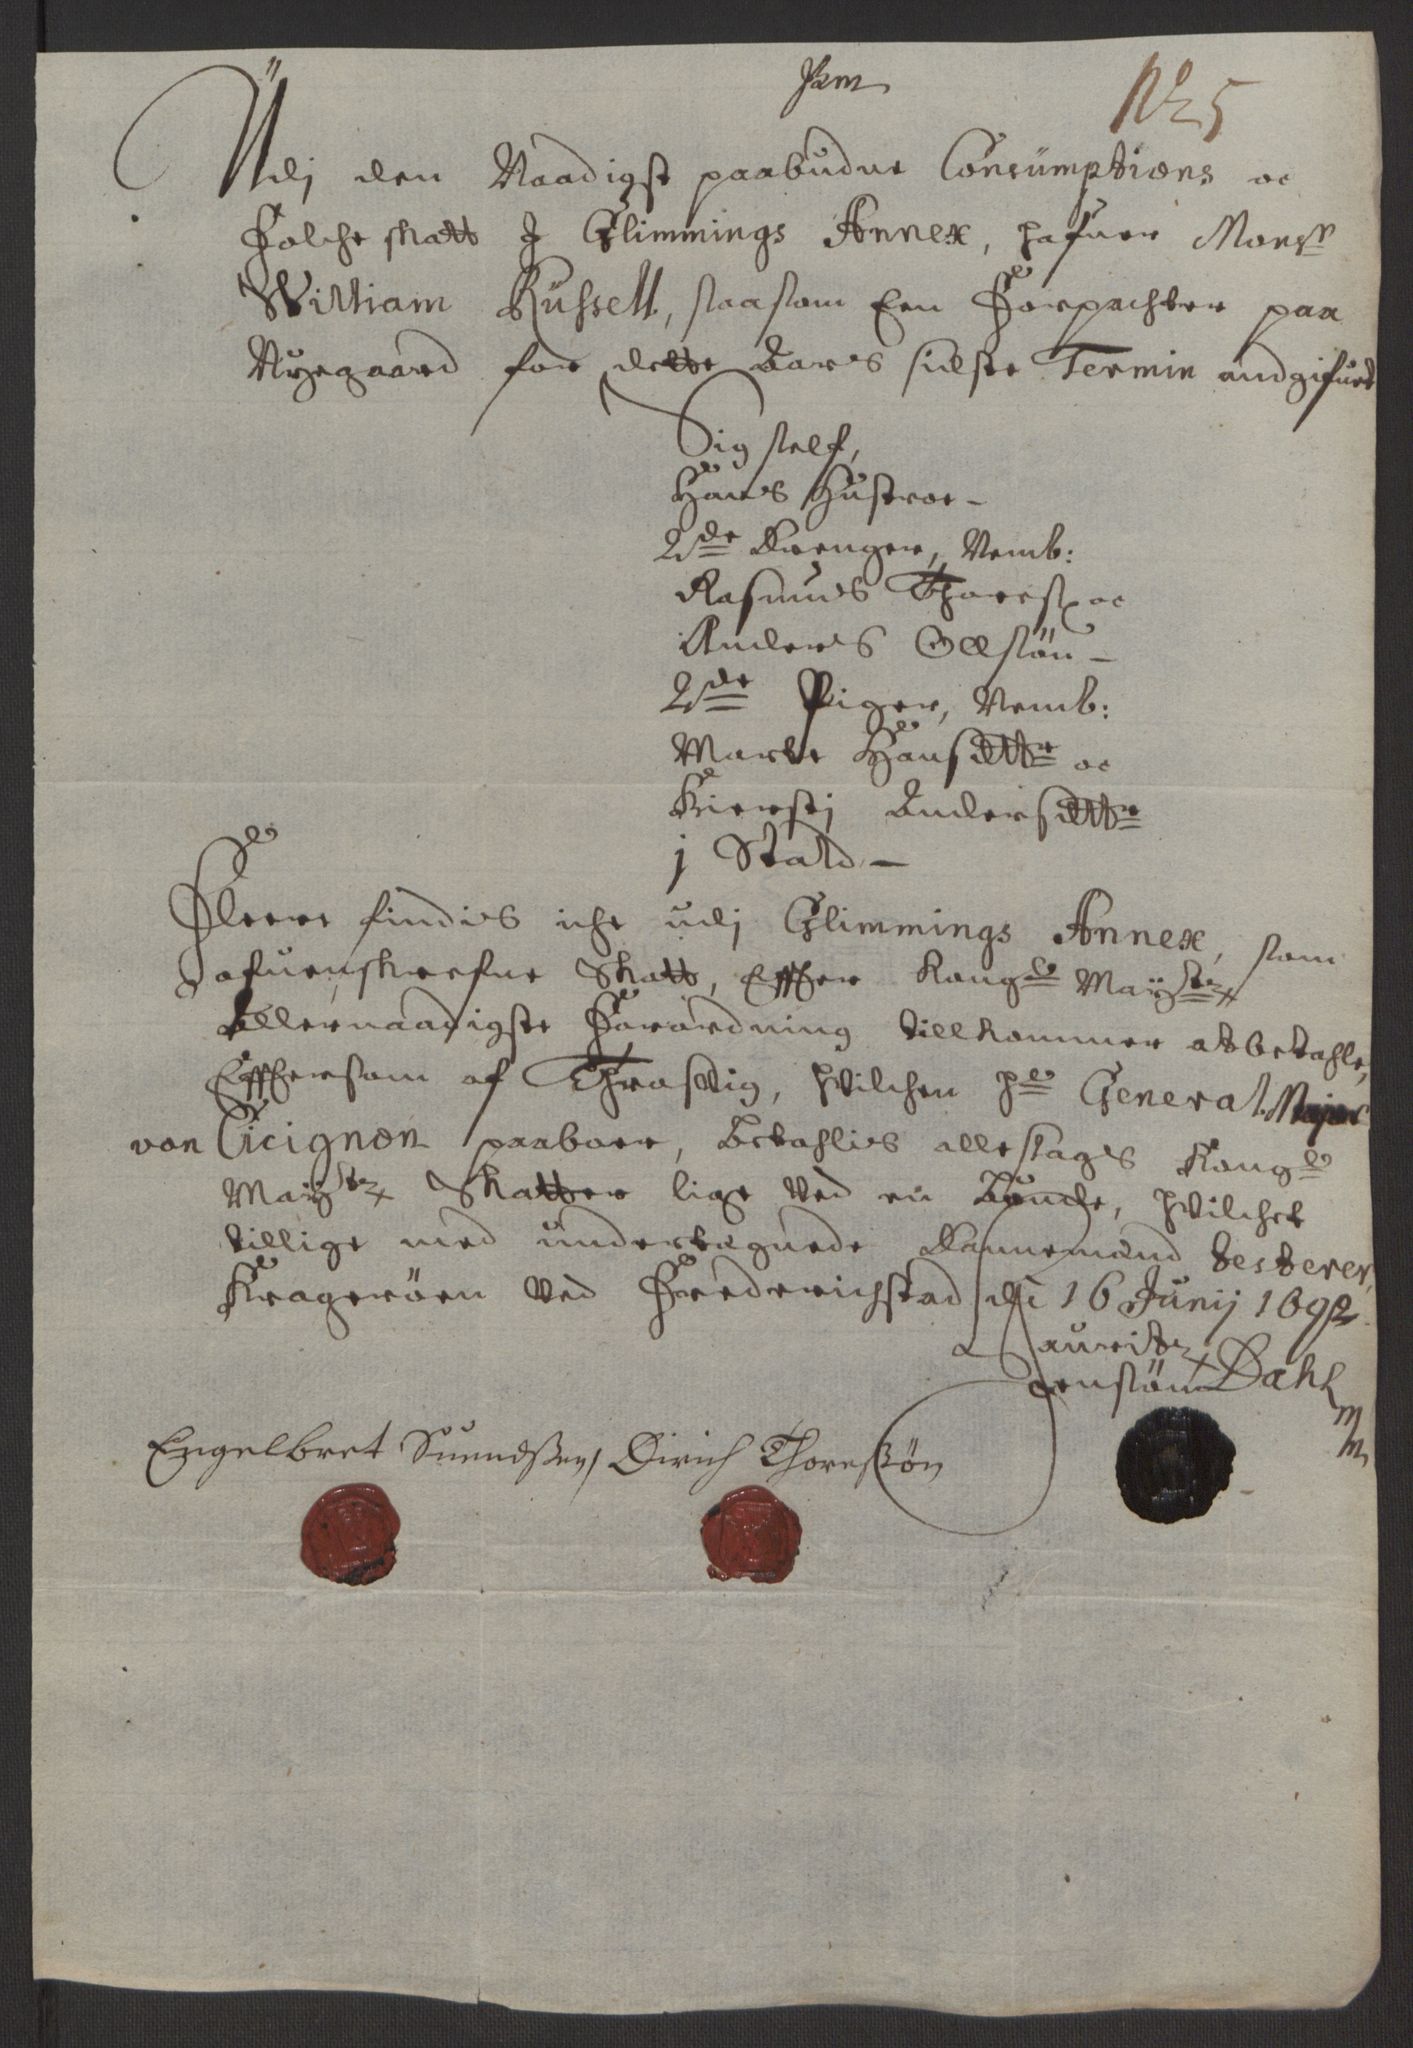 No 5
Udj den Naadigst paabudne Consumptions oc
Folche skatt J Glimmings Annex, hafuer Monsr
William Russell, saasom een Forpachter paa
Nyegaard for dette Aars sidste Termin andgifuet
Sig self,
Hans Hustroe -
2de Drenger, Nemb:
Rasmus Thoress: oc
Anders Olsøn -
2de Piger, Nemb:
Marte Hansdttr oc
Kierstj Andersdttr
j Stald -
Fleere findis iche udj Glimmings Annex, som
ofuenskrefne Skatt, effter Kongl Mayts
Allernaadigste Forordning tillkommer at betahle,
Efftersom af Throsvig, hvilchen hl General Major
von Cicignon paaboer, betahlis alleslags Kongl
Mayts Skatter lige ved en Bonde, hvilchet
tillige med undertegnede Dannemænd testerer,
Kragerøen ved Friderichstad di 16 Junij 1692
Lauritz
Jensøn Dahl
mm
Engelbret Suendssen Dirich Thoressøn